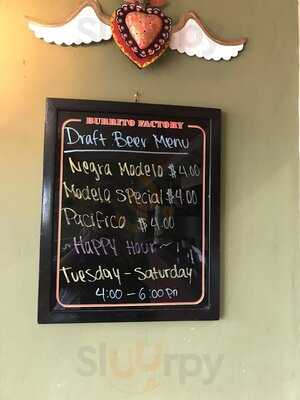 BURRITO FACTORY
Draft Beer Menu
Negra Modelo $4.00
Modelo Special $4.00
Pacifico $4.00
~Happy Hour~
Tuesday - Saturday
4:00 - 6:00 pm
Slurrpy